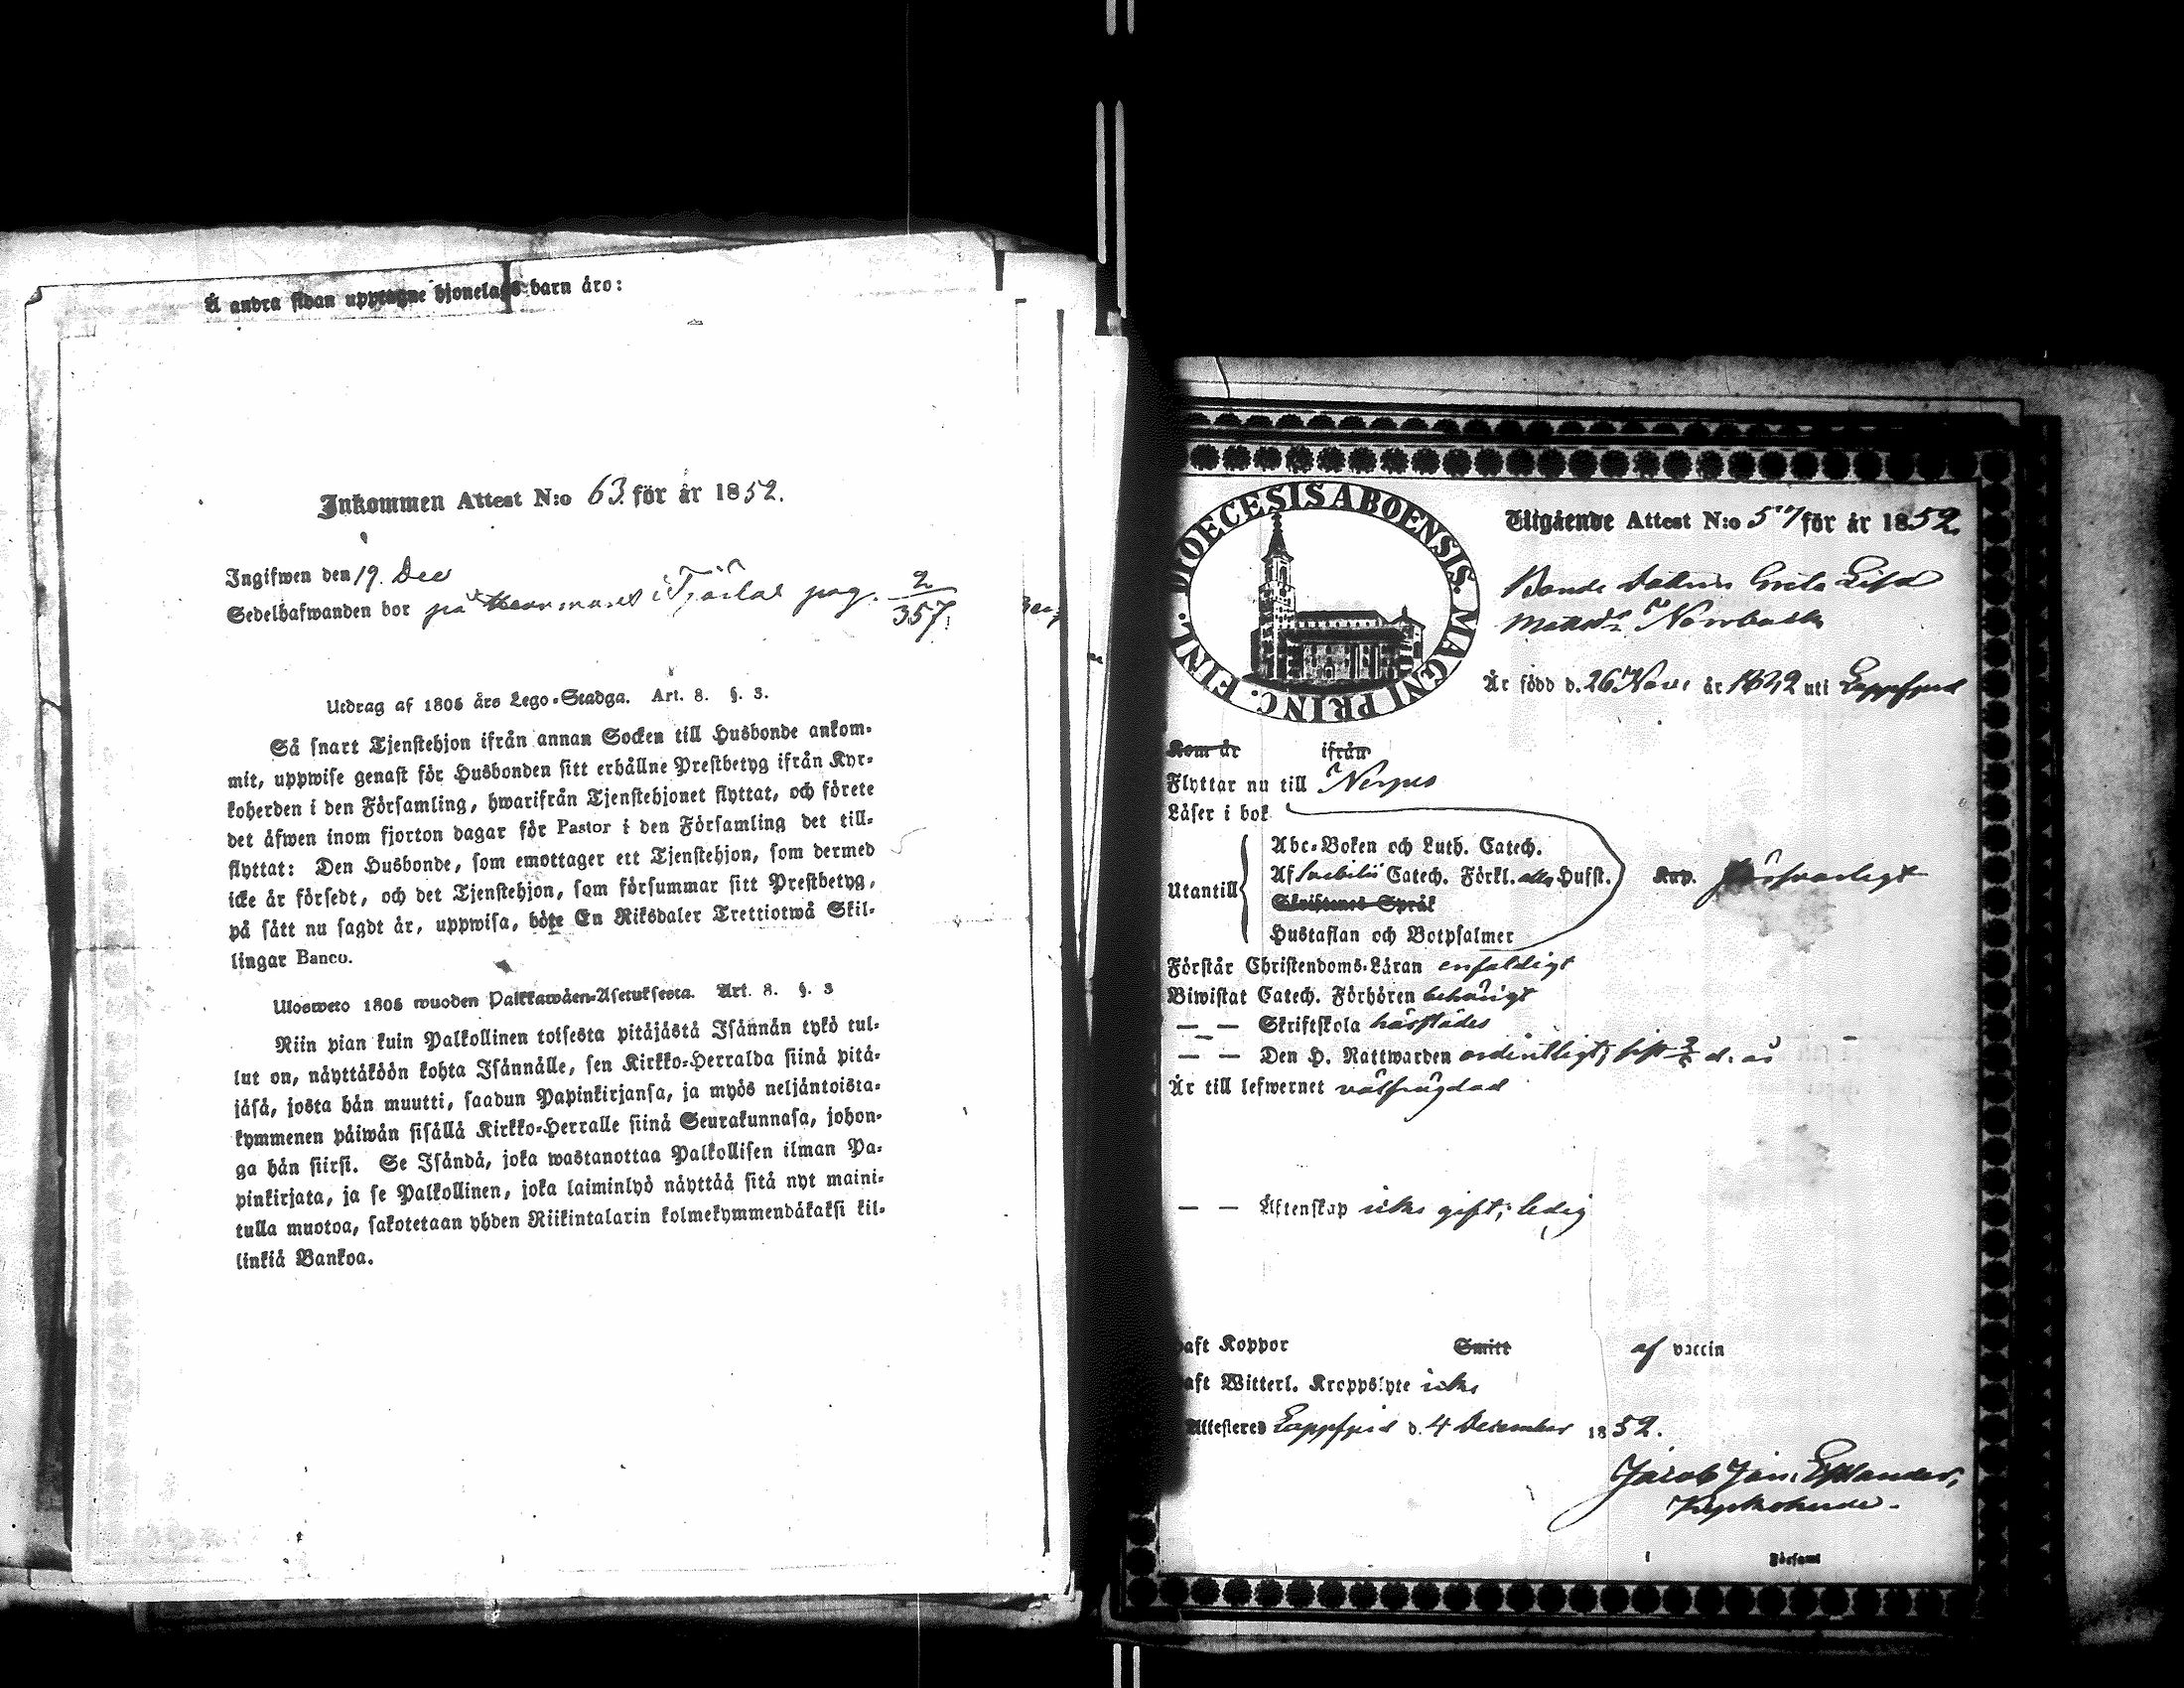 Å andra sidan upptagne hjonelags barn äro:
Inkommen Attest N:o 63. för år 1852.
Ingifwen den 19. Dec
Sedelhafwanden bor på i Tjärlax pag. 2/357.
Utdrag af 1805 års Lego-Stadga. Art. 8. §. 3.
Så snart Tjenstehjon ifrån annan Socken till Husbonde ankom-
mit, uppwise genast för Husbonden sitt erhållne Prestbetyg ifrån Kyr-
koherden i den Församling, hwarifrån Tjenstehjonet flyttat, och förete
det äfwen inom fjorton dagar för Pastor i den Församling det till-
flyttat: Den Husbonde, som emottager ett Tjenstehjon, som dermed
icke är försedt, och det Tjenstehjon, som försummar sitt Prestbetyg,
på sätt nu sagdt är, uppwisa, böte En Riksdaler Trettiotwå Skil-
lingar Banco.
Ulosweto 1805 wuoden Palkkawäen-Asetuksesta. Art. 8. §. 3
Niin pian kuin Palkollinen toisesta pitäjästä Isännän tykö tul-
lut on, näyttäköön kohta Isännälle, sen Kirkko-Herralda siinä pitä-
jäsä, josta hän muutti, saadun Papinkirjansa, ja myös neljäntoista-
kymmenen päiwän sisällä Kirkko-Herralle siinä Seurakunnasa, johon-
ga hän siirsi. Se Isändä, joka wastanottaa Palkollisen ilman Pa-
pinkirjata, ja se Palkollinen, joka laiminlyö näyttää sitä nyt maini-
tulla muotoa, sakotetaan yhden Riikintalarin kolmekymmendäkaksi kil-
linkiä Bankoa.
DIOECESIS ABOENSIS. MAGNI PRINC. FINL.
Utgående Attest N:o 57 för år 1852.
Bonde dottren Greta Lisa
Mattsdr Norrback
Är född d. 26 Nov. år 1832 uti Lappfjerd
Kom år ifrån
Flyttar nu till Nerpes
Läser i bok
Abc-Boken och Luth. Catech.
Utantill Af Svebilii Catech. Förkl. Husst. Kap. försvarligt
Skriftenes Språk
Hustaflan och Botpsalmer
Förstår Christendoms-Läran enfaldigt
Biwistat Catech. Förhören behörigt
— — Skriftskola härstädes
— — Den H. Nattwarden ordentligt, sist d. år
Är till lefwernet välfrägdad
— — Äktenskap icke gift; ledig
aft Koppor Smitt af vaccin
aft Witterl. Kroppslyte icke
Attesteras Lappfjerd d. 4 December 1852.
Jacob Joh.
Kyrkoherde.
Församl